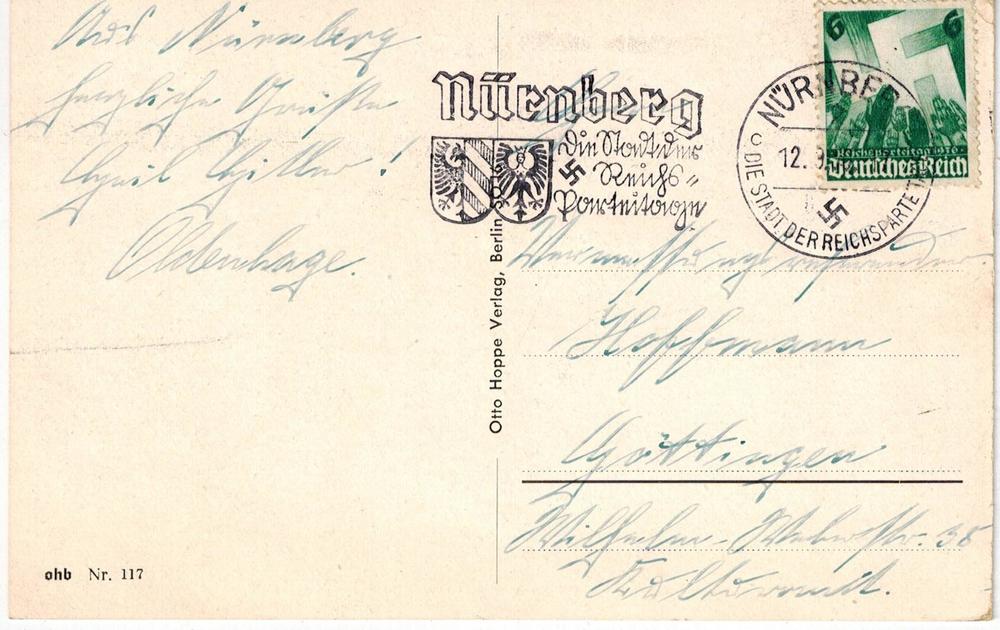 Aus Nürnberg
herzliche Grüße
Heil Hitler!
Odenhage.
Nürnberg
Die Stadt der
Reichs-
Parteitage
NÜRNBE
12.9
DIE STADT DER REICHSPARTEITA
6 6
Reichsparteitag 1936
Deutsches Reich
Otto Hoppe Verlag, Berlin SO
Vermessungsreferendar
Hoffmann
Göttingen
Wilhelm-Weberstr. 38
Kulturamt.
ohb Nr. 117